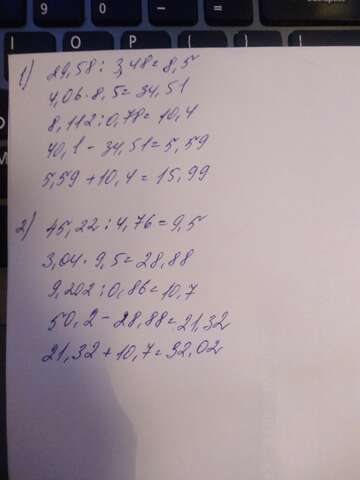 9 0 - =
I O P { }
1) 29,58 : 3,48 = 8,5
4,06 · 8,5 = 34,51
8,112 : 0,78 = 10,4
40,1 - 34,51 = 5,59
5,59 + 10,4 = 15,99
2) 45,22 : 4,76 = 9,5
3,04 · 9,5 = 28,88
9,202 : 0,86 = 10,7
50,2 - 28,88 = 21,32
21,32 + 10,7 = 32,02